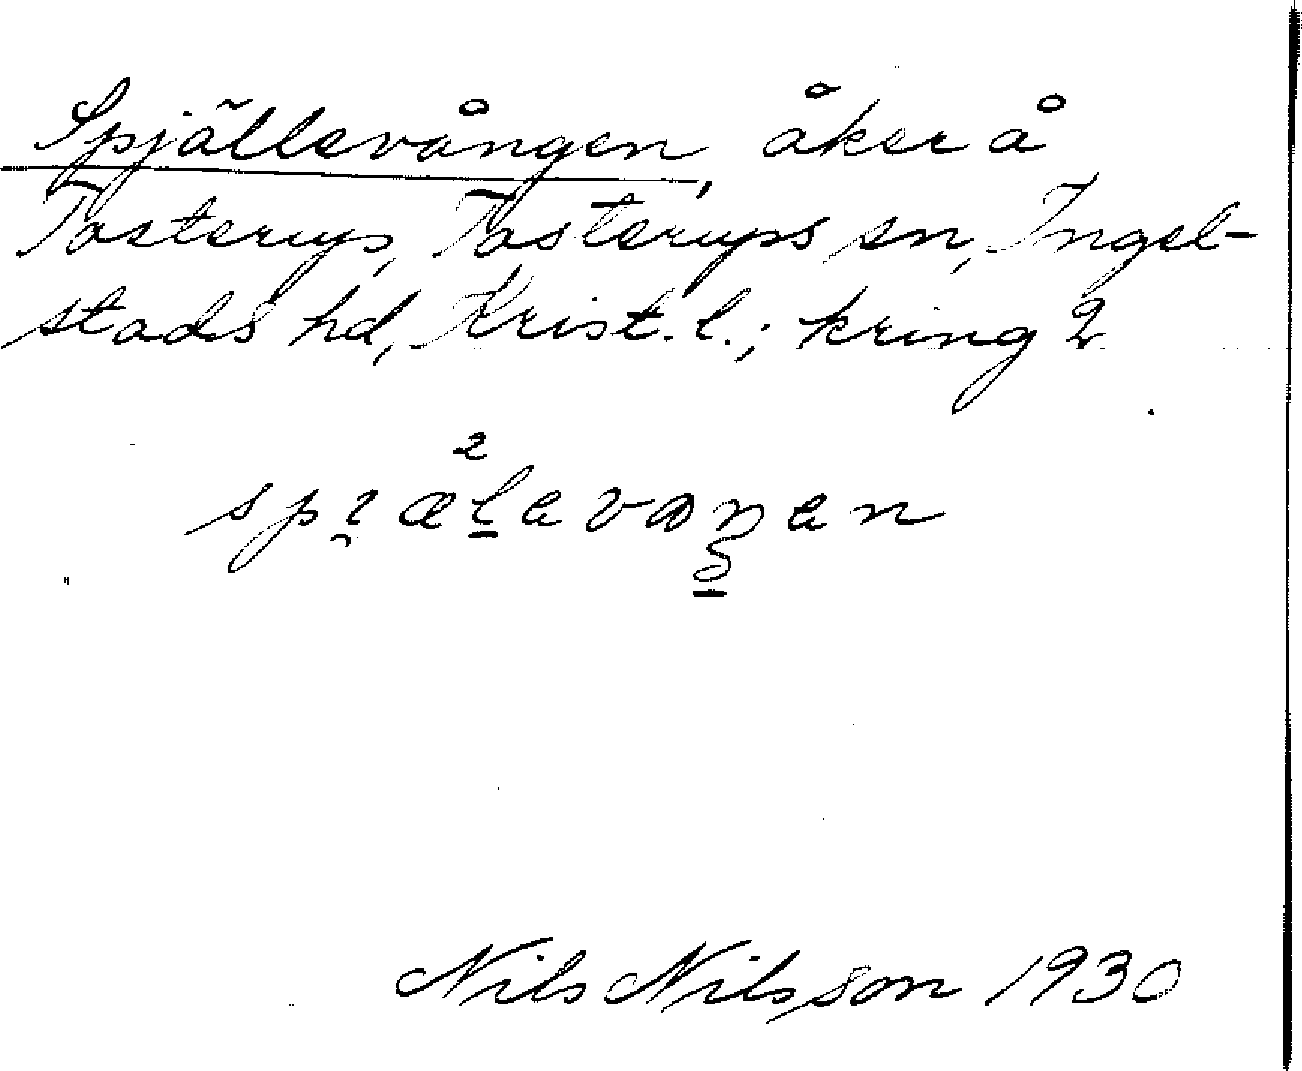 Spjällevången, åker å
Tosterup, Tosterups sn, Ingel-
stads hd, Krist. l.; kring 2
Nils Nilsson 1930